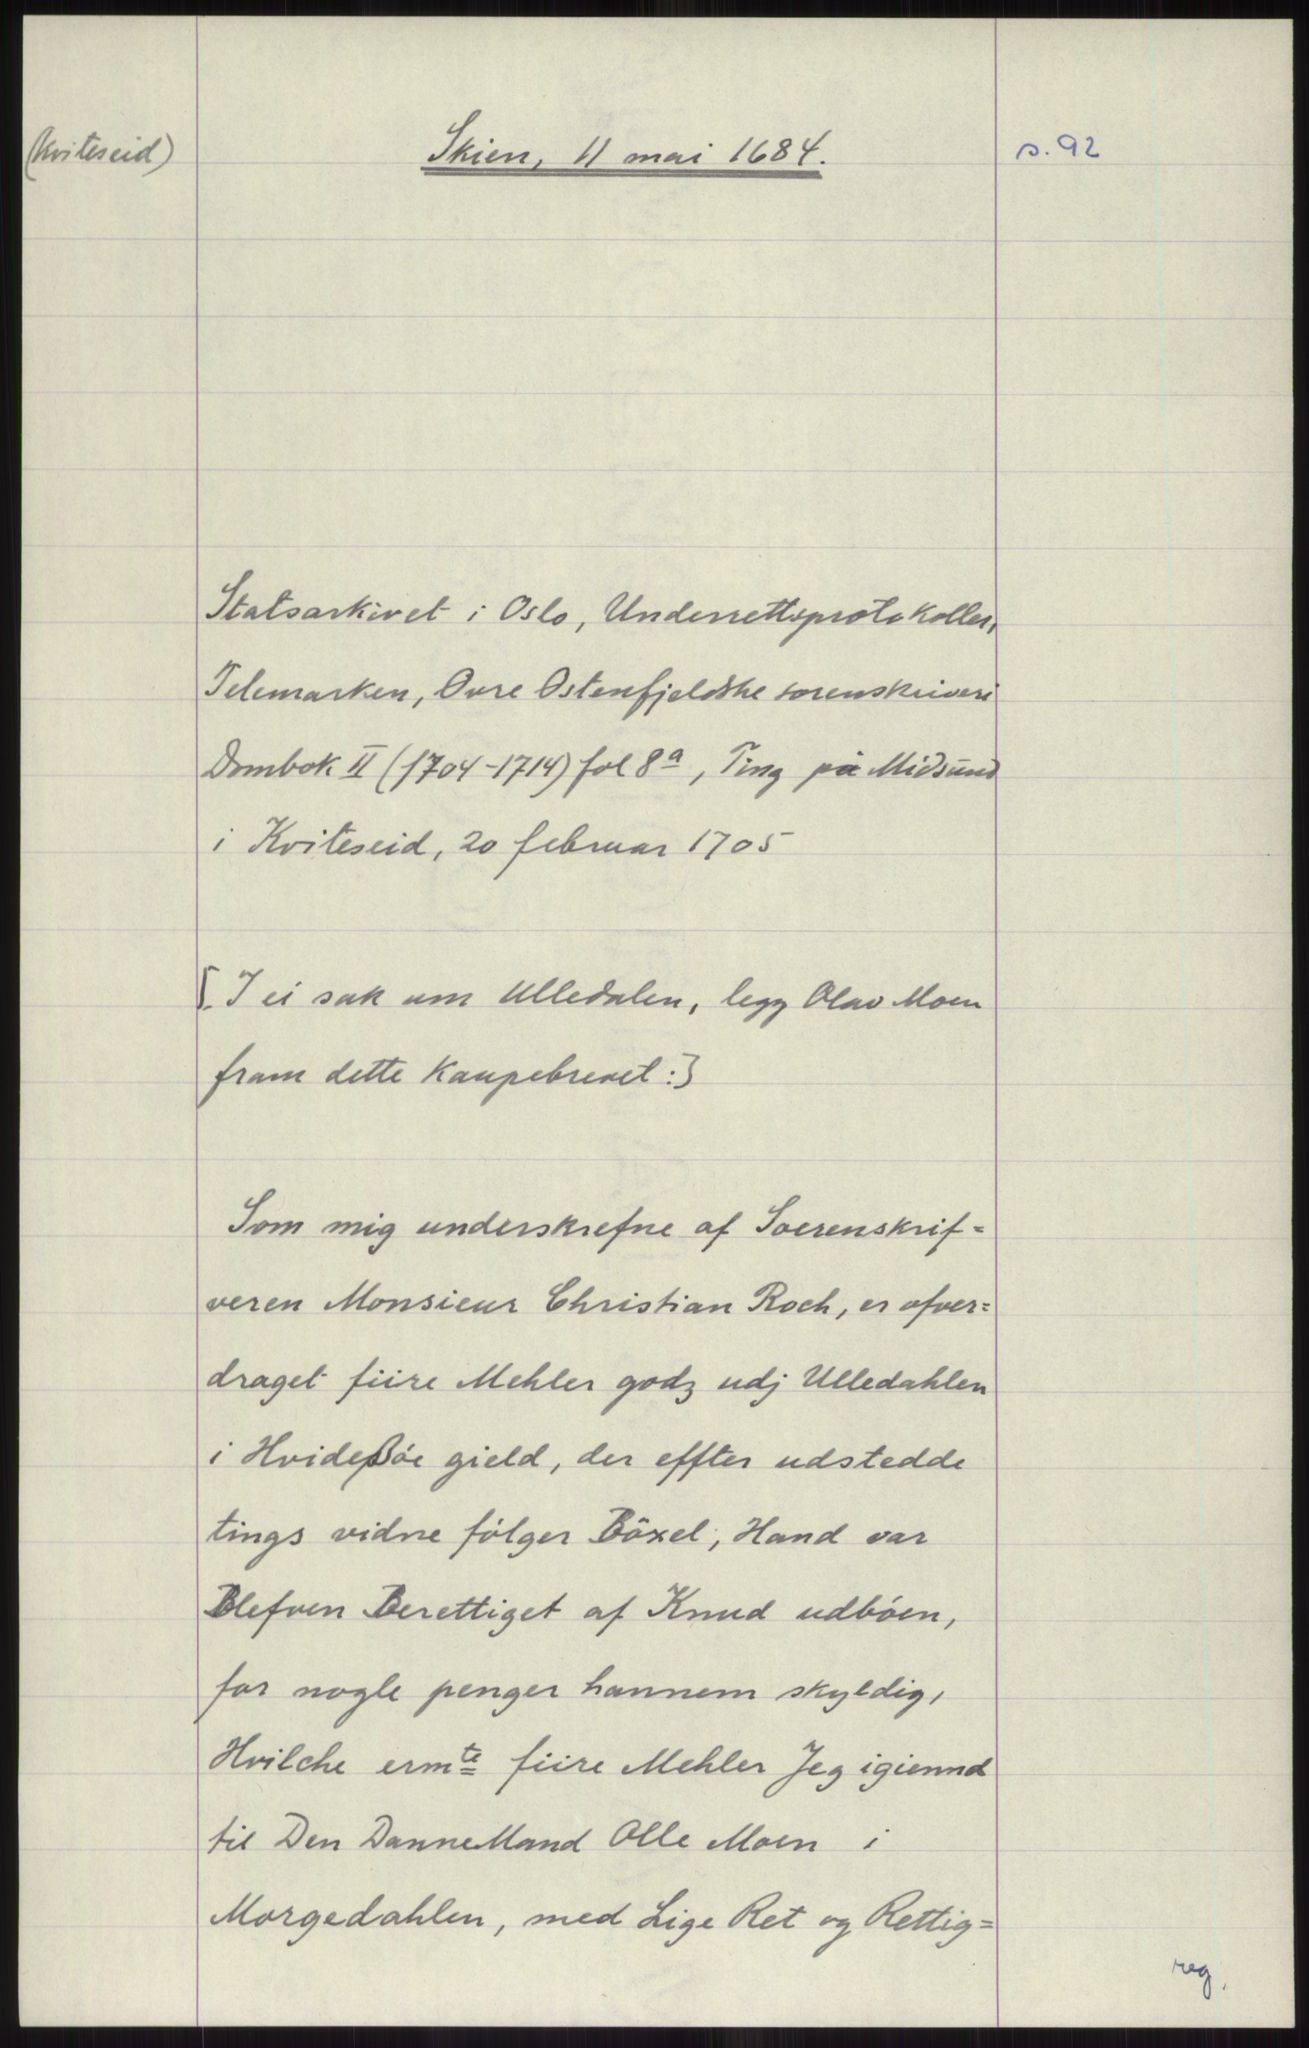 (Kviteseid)
Skien, 11 mai 1684.
s. 92
Statsarkivet i Oslo, Underrettsprotokoller,
Telemarken, Øvre Østenfjeldske sorenskriveri
Dombok II (1704-1714) fol 8a, Ting på Midsund
i Kviteseid, 20 februar 1705
[I ei sak um Ulledalen, legg Olav Moen
fram dette kaupebrevet:]
Som mig underskrefne af Soerenskrif=
veren Monsieur Christian Roch, er ofver=
draget fiire Mehler godz udj Ulledahlen
i Hvideßöe gield, der effter udstedde
tings vidne fölger Böxel, Hand var
Blefven Berettiget af Knud udböen,
for nogle penger hannem skyldig,
Hvilche ermte fiire Mehler Jeg igiennd
til Den DanneMand Olle Moen i
Morgedahlen, med Lige Ret og Rettig=
reg.